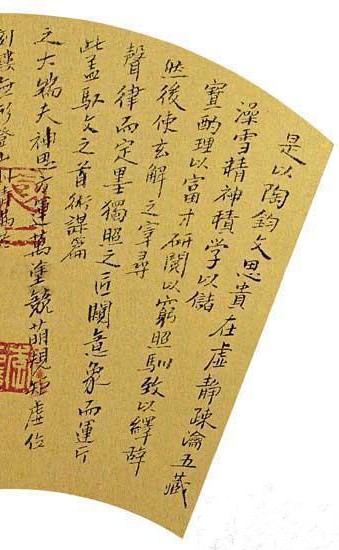 是以陶鈞文思貴在虛靜疎瀹五藏
澡雪精神積學以儲
寶酌理以富才研閱以窮照馴致以繹辭
然後使玄解之宰尋
聲律而定墨獨照之匠闚意象而運斤
此盖馭文之首術謀篇
之大端夫神思方運萬塗競萌規矩虛位
刻鏤無形登山